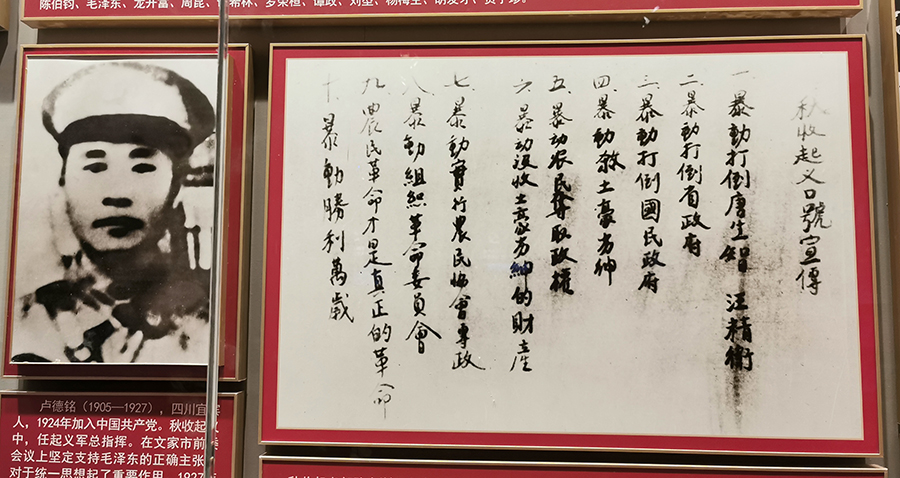 陈伯钧、毛泽东、龙开富、周昆、希林、罗荣桓、谭政、刘型、杨梅生、胡友才、贺子珍。
秋收起义口號宣傳
一、暴動打倒唐生智 汪精衛
二、暴動打倒省政府
三、暴動打倒國民政府
四、暴動殺土豪劣绅
五、暴动农民夺取政權
六、暴动没收土豪劣绅的財產
七、暴動實行農民協會專政
八、暴動組织革命委員會
九、農民革命才是真正的革命
十、暴動勝利萬歲
卢德铭（1905—1927），四川宜宾
人，1924年加入中国共产党。秋收起
中，任起义军总指挥。在文家市前
会议上坚定支持毛泽东的正确主张
对于统一思想起了重要作用。1927